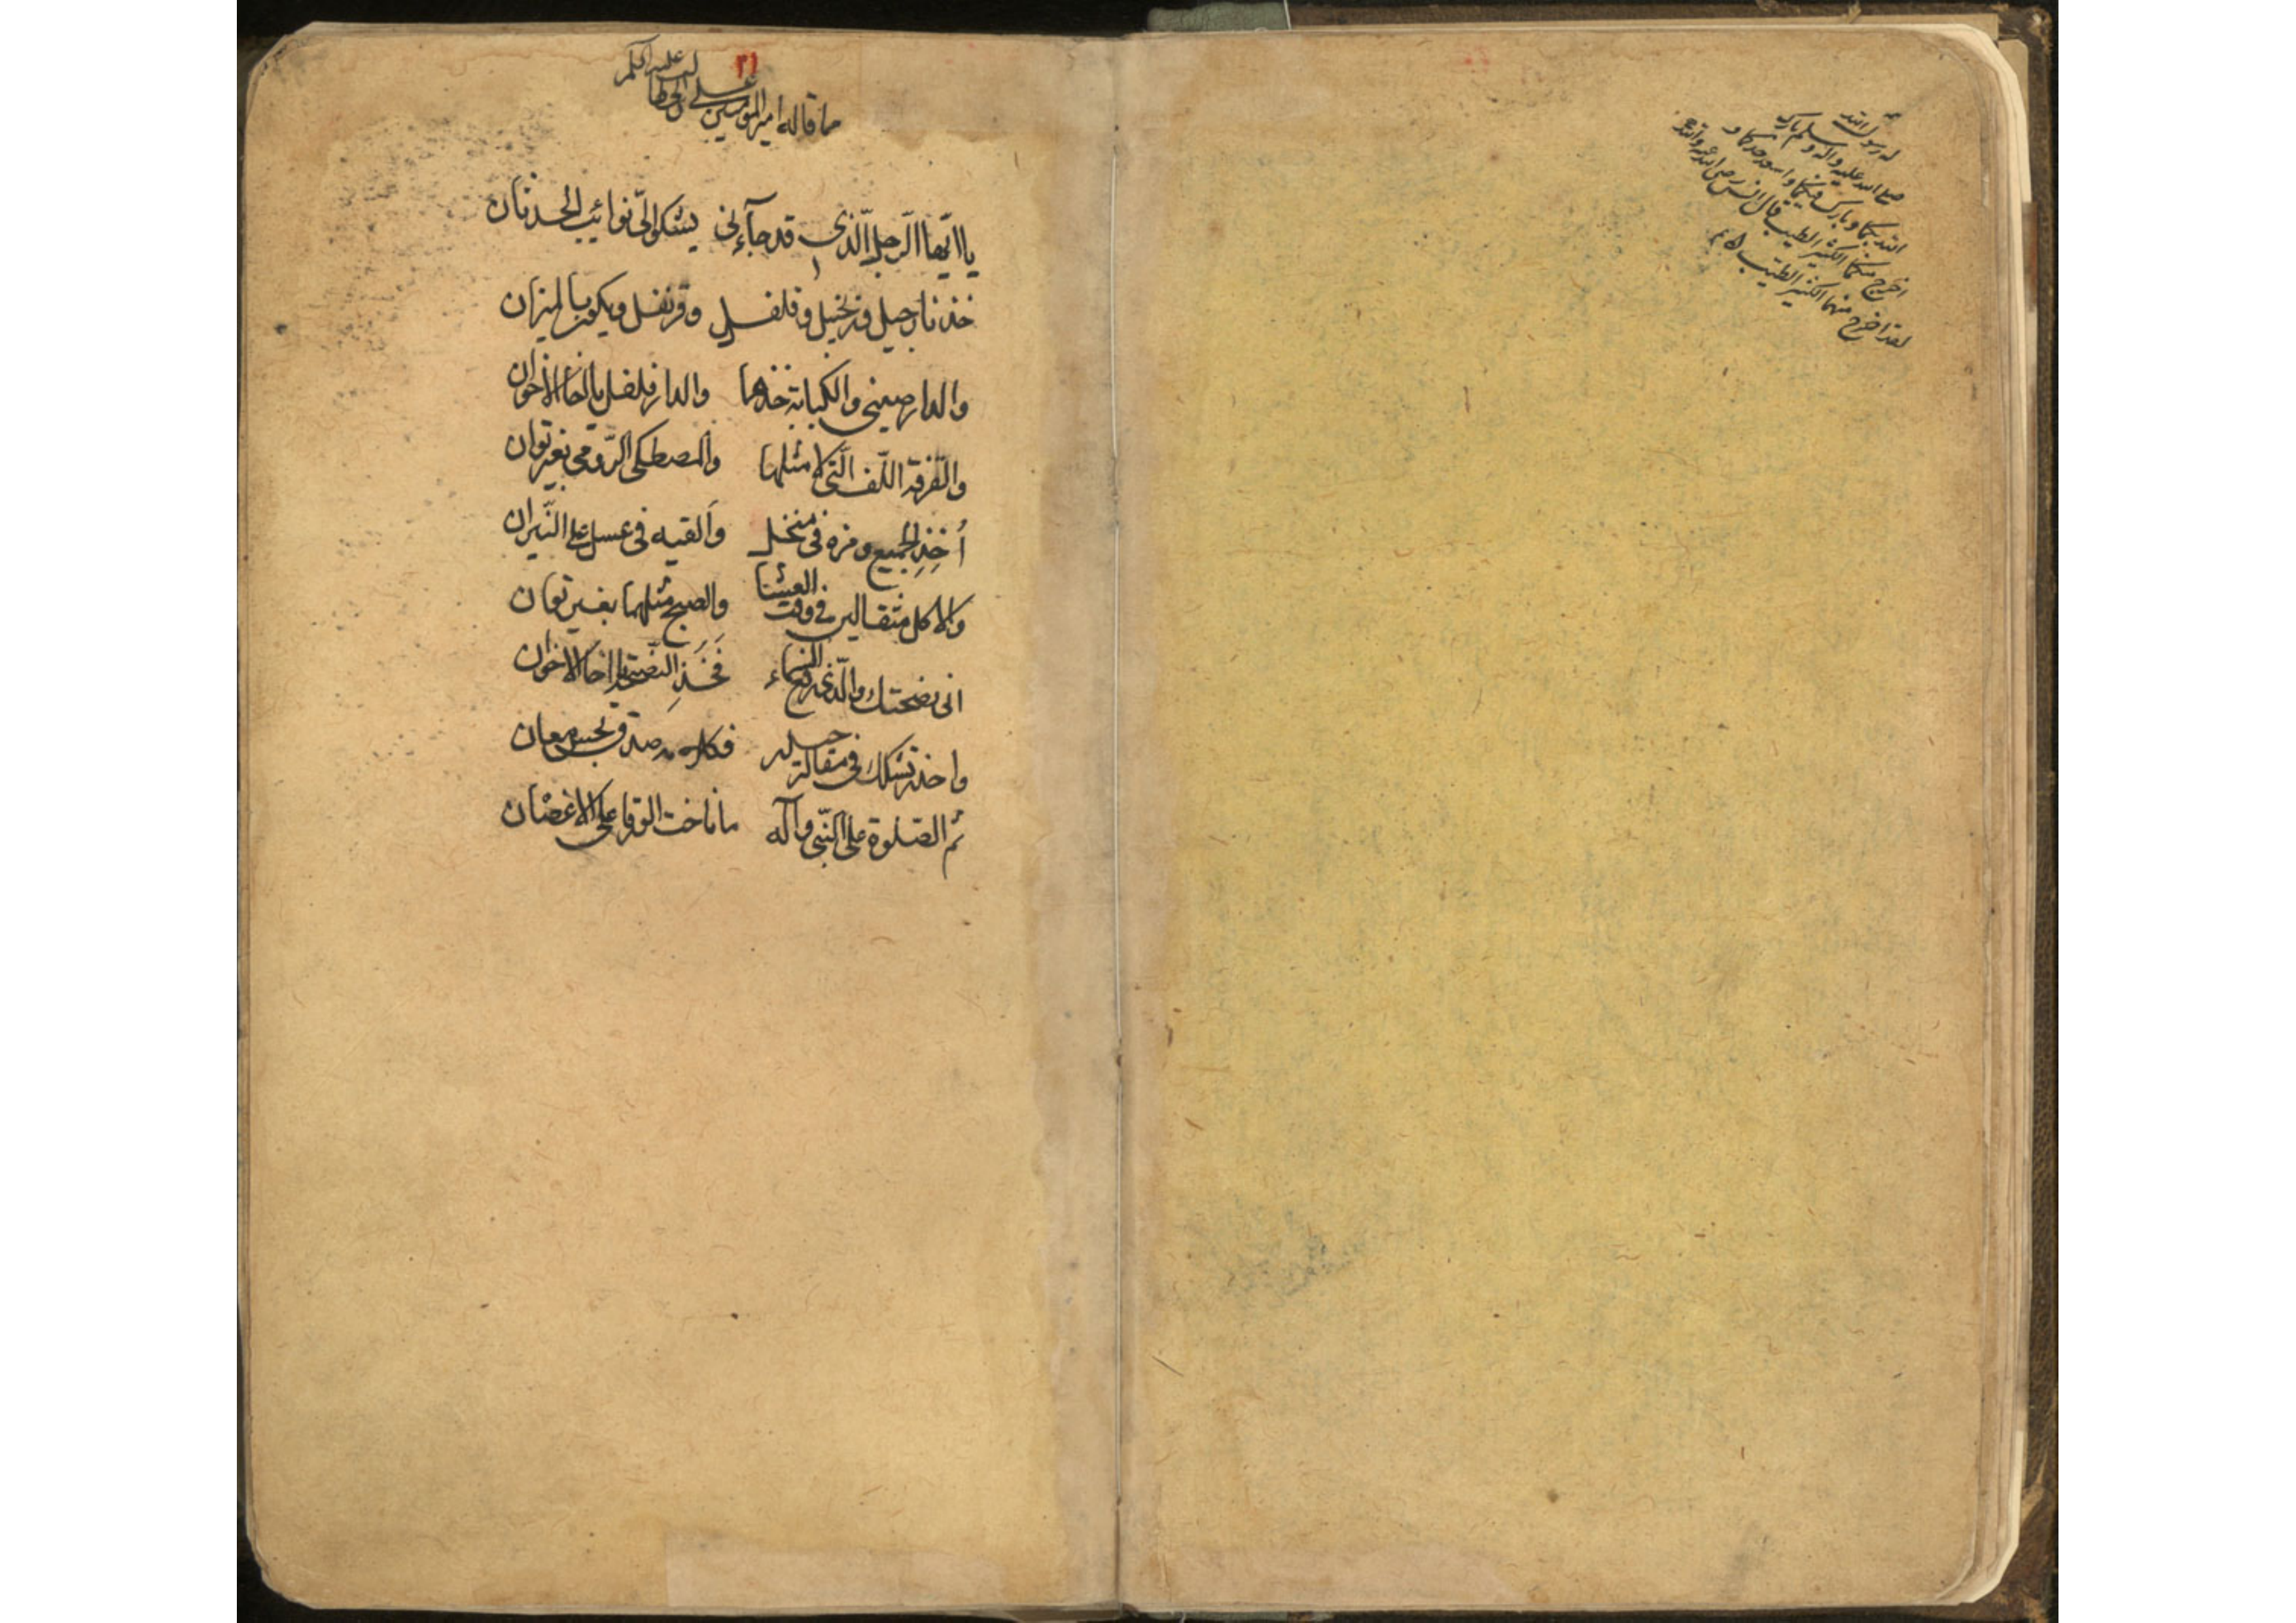 له رسول الله
صلى الله عليه واله وسلم بارك
الله بكما وبارك فيكما واسعد جدكما و
اخرج منكما الكثير الطيب قال انس رضى الله عنه والله
لقد اخرج منهما الكثير الطيب
٢١
مما قاله امير المؤمنين على عليه
يا ايها الرجل الذى قد جآءنى يشكو الىّ نوائب الحدثان
خذ نارجيل وزنجبيل وفلفل وقرنفل ويكون بالميزان
والدارصينى والكبابة خذهما والدارفلفل يا اخا الاخوان
والقرفة اللف التى لا مثلها والمصطكى الرومى بغير توان
أخذ الجميع ومزه فى منخل وألقيه فى عسل على النيران
والاكل مثقالين فى وقت العشا والصبح مثلهما بغير توان
انى نصحتك والذى رفع السماء فَخُذِ النصيحة يا اخا الاخوان
واحذر تشكك فى مقالة حيدر صدق بحسن معان
ثم الصلوة على النبى وآله ما ناخت الورقا على الاغصان